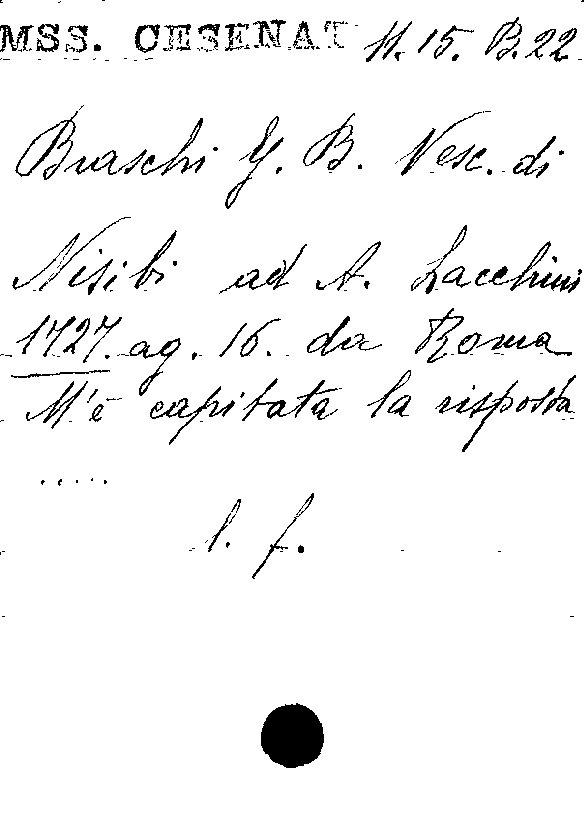 MSS. CESENAT 11. 15. B. 22
Braschi G. B. Vesc. di
Nisibi ad A. Lacchini
1727. ag. 16. da Roma
M'è capitata la risposta
.....
l. f.